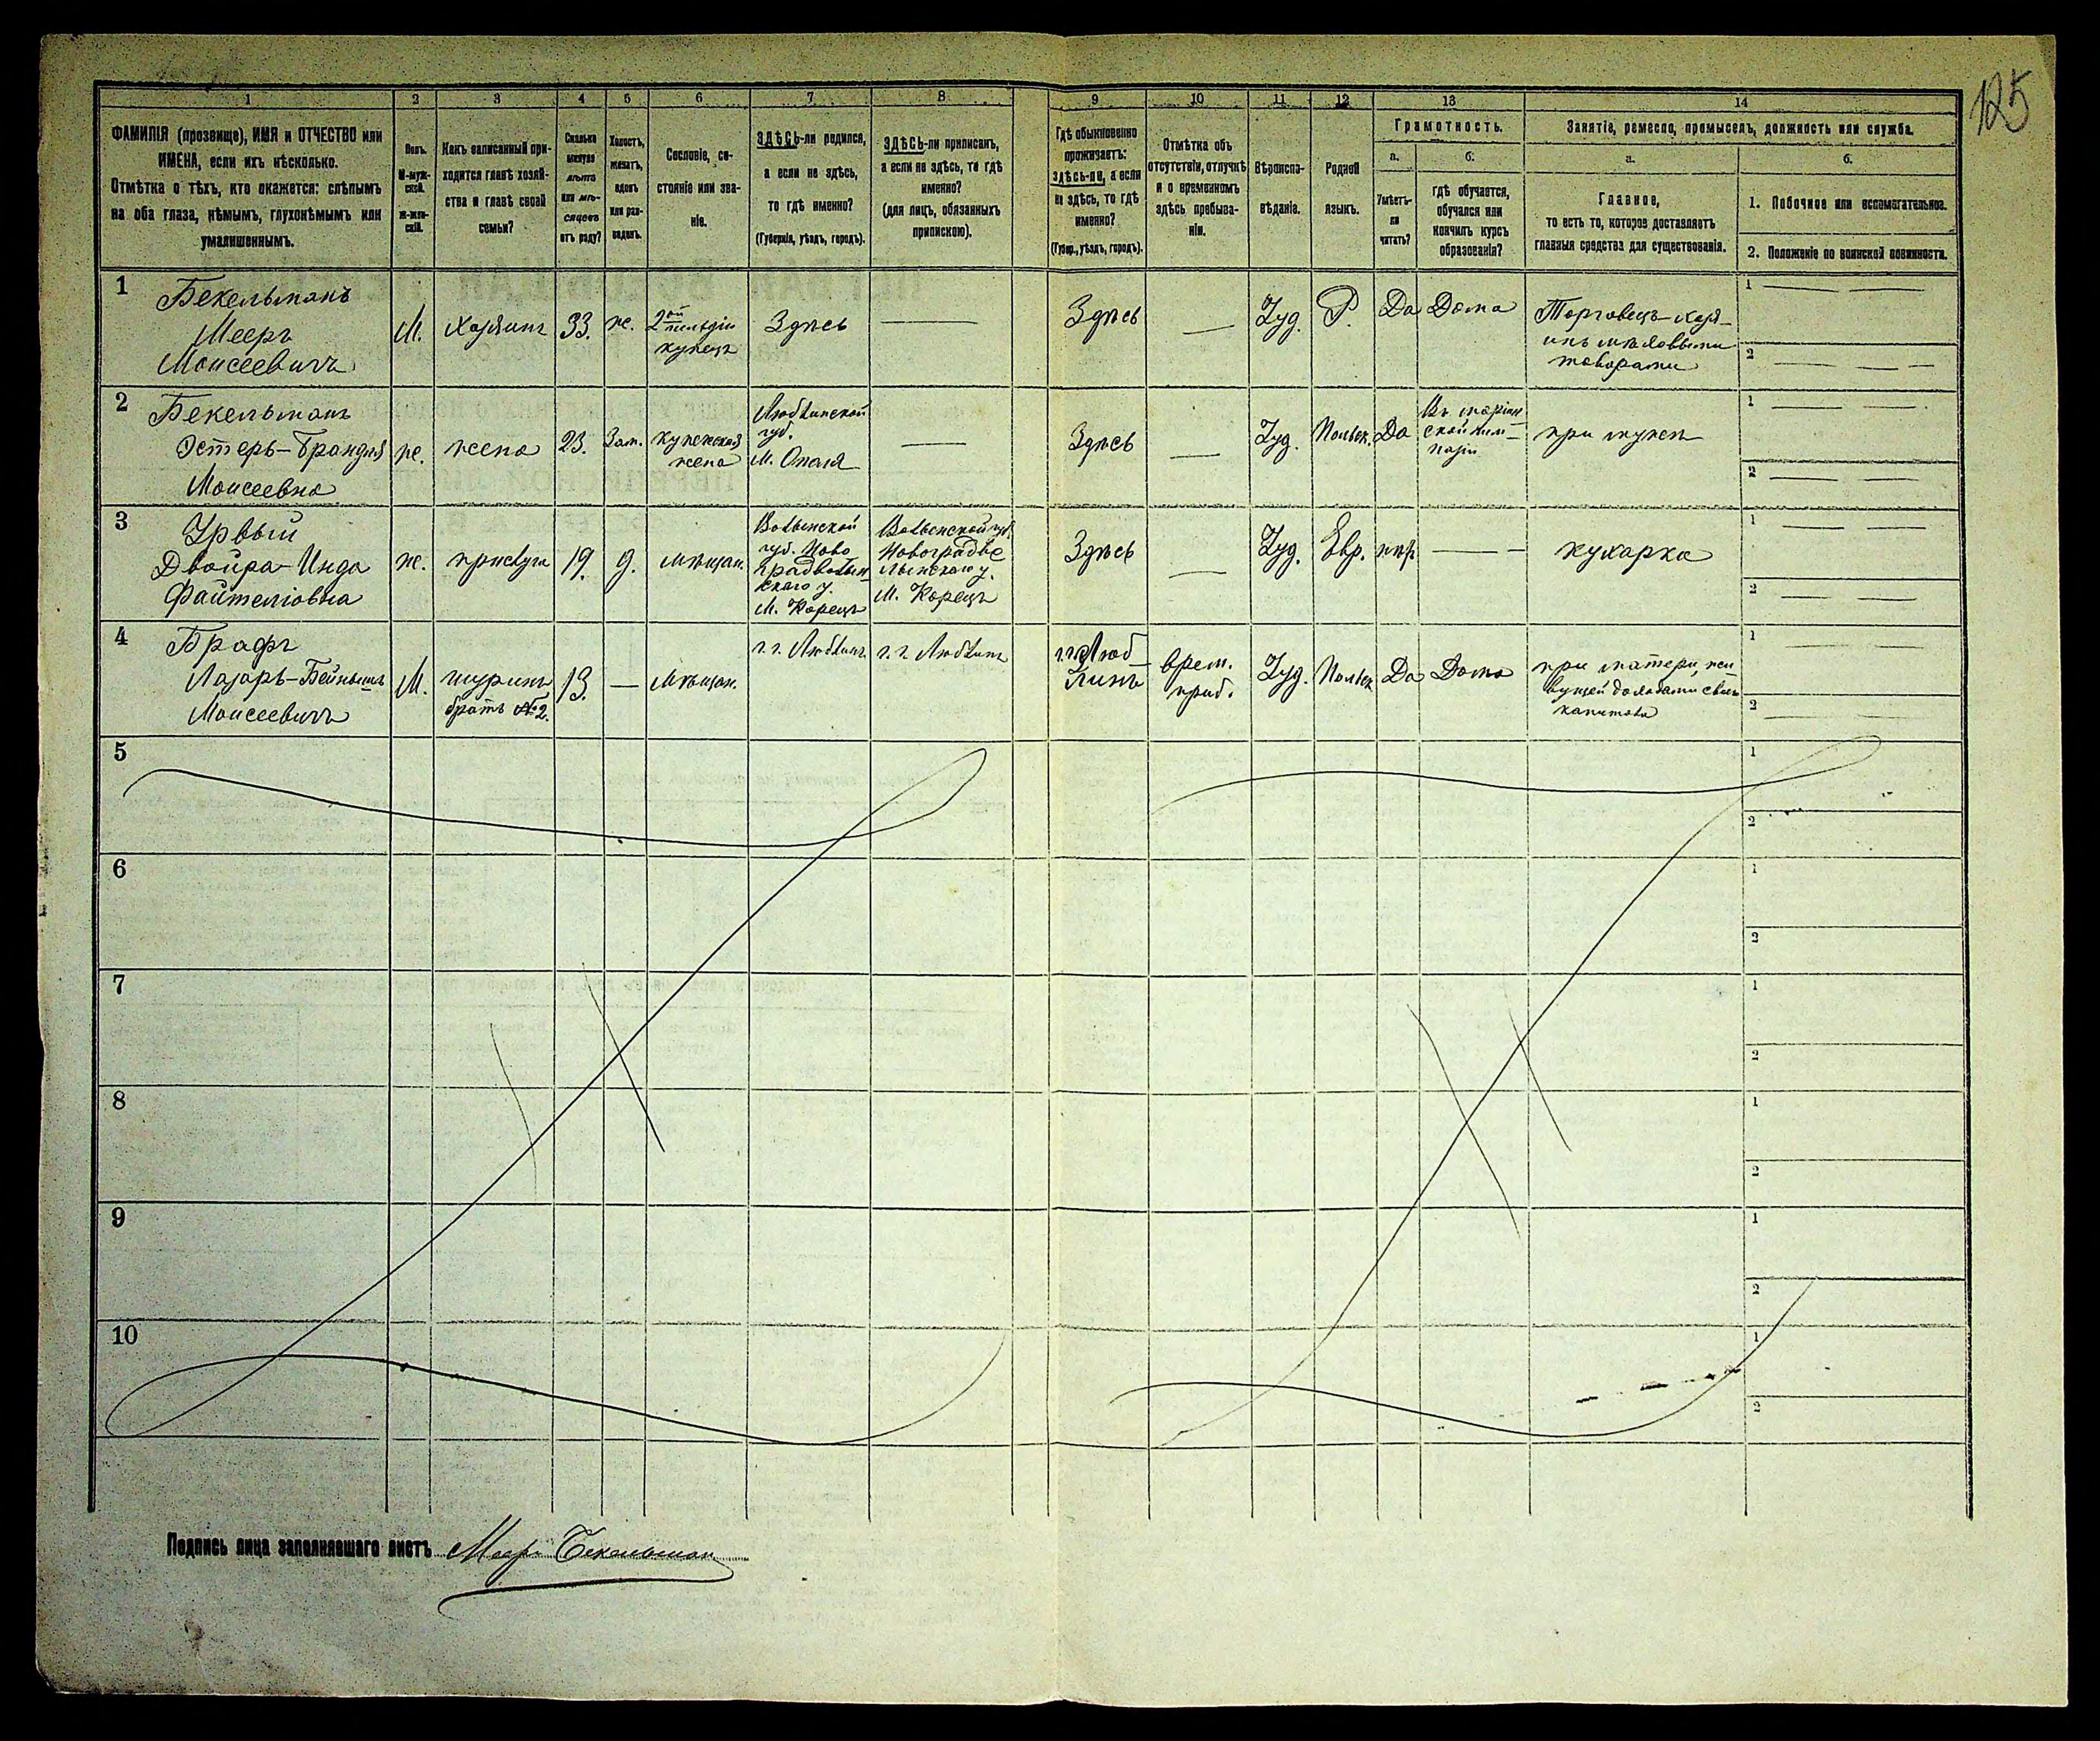 125
1 2 3 4 5 6 7 8 9 10 11 12 13 14
ФАМИЛІЯ (прозвище), ИМЯ и ОТЧЕСТВО или
ИМЕНА, если ихъ нѣсколько.
Отмѣтка о тѣхъ, кто окажется: слѣпымъ
на оба глаза, нѣмымъ, глухонѣмымъ или
умалишеннымъ.
Полъ.
М-муж-
ской.
ж-жен-
скій.
Какъ записанный при-
ходится главѣ хозяй-
ства и главѣ своей
семьи?
Сколько
минуло
лѣтъ
или мѣ-
сяцевъ
отъ роду?
Холостъ,
женатъ,
вдовъ
или раз-
веденъ.
Сословіе, со-
стояніе или зва-
ніе.
ЗДѢСЬ-ли родился,
а если не здѣсь,
то гдѣ именно?
(Губернія, уѣздъ, городъ).
ЗДѢСЬ-ли приписанъ,
а если не здѣсь, то гдѣ
именно?
(для лицъ, обязанныхъ
припискою).
Гдѣ обыкновенно
проживаетъ:
здѣсь-ли, а если
не здѣсь, то гдѣ
именно?
(Губер., уѣздъ, городъ).
Отмѣтка объ
отсутствіи, отлучкѣ
и о временномъ
здѣсь пребыва-
ніи.
Вѣроиспо-
вѣданіе.
Родной
языкъ.
Грамотность.
а.
Умѣетъ-
ли
читать?
б.
гдѣ обучается,
обучался или
кончилъ курсъ
образованія?
Занятіе, ремесло, промыселъ, должность или служба.
а.
Главное,
то есть то, которое доставляетъ
главныя средства для существованія.
б.
1. Побочное или вспомогательное.
2. Положеніе по воинской повинности.
1
Бекельманъ
Мееръ
Моисеевичъ
М.
Хозяинъ
33.
ж.
2ой
гильдіи
купецъ
Здѣсь
Здѣсь
Іуд.
Р.
Да
Дома
Торговецъ-хозя-
инъ мѣховыми
товарами
1
2
2
Бекельманъ
Эстеръ-Брандля
Моисеевна
ж.
жена
23.
Зам.
купеческая
жена
Люблинской
губ.
М. Ополя
Здѣсь
Іуд.
Польск.
Да
Въ маріин
ской гим-
назіи
при мужѣ
1
2
3
Двойра-Инда
ж.
прислуга
19.
д.
мѣщан.
Волынской
губ. Ново
градволын
скаго у.
М. Корецъ
Волынской губ.
Новоградво
лынскаго у.
М. Корецъ
Здѣсь
Іуд.
Евр.
нѣт
кухарка
1
2
4
Брафъ
Лазарь-Бейнышъ
Моисеевичъ
М.
шуринъ
братъ № 2.
13.
мѣщан.
г.г. Люблинъ
г.г. Люблинъ
г.г. Люб
линъ
врем.
приб.
Іуд.
Польск
Да
Дома
при матери, жи
вущей доходами съ
капитала
1
2
5
1
2
6
1
2
7
1
2
8
1
2
9
1
2
10
1
2
Подпись лица заполнявшаго листъ Мееръ Бекельман